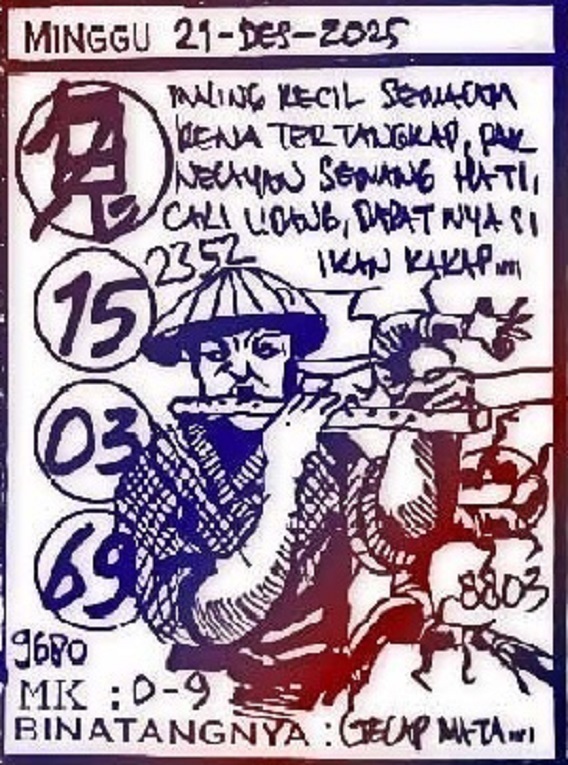 MINGGU 21-DES-2025
MALING KECIL SEMALAM
KENA TERTANGKAP, PAK
NELAYAN SENANG HATI,
CARI UDANG, DAPATNYA SI
IKAN KAKAP...
2352
15
03
69
8803
9680
MK : 0-9
BINATANGNYA : GECAP MATA...